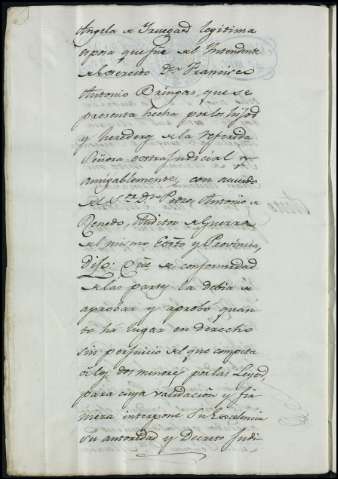 Angela de Yruegas legitima
esposa que fue del Yntendente
de exercito Dn. Francisco
Antonio Dringas, que se
presenta hecha por los hijos
y herederos de la referida
Señora extrajudicial y
amigablemente, con acuerdo
del Sr. Dr. Dn. Pedro Antonio de
Penedo, Auditor de Guerra
del mismo Exto. y Provincia,
Dijo: Que de conformidad
de las partes la debia de
aprobar y aprobó quan
to ha lugar en derecho
sin perjuicio del que competa
á los dos menores por las Leyes,
para cuya validación y fir
meza interpone Su Excelencia
su autoridad y Decreto Judi